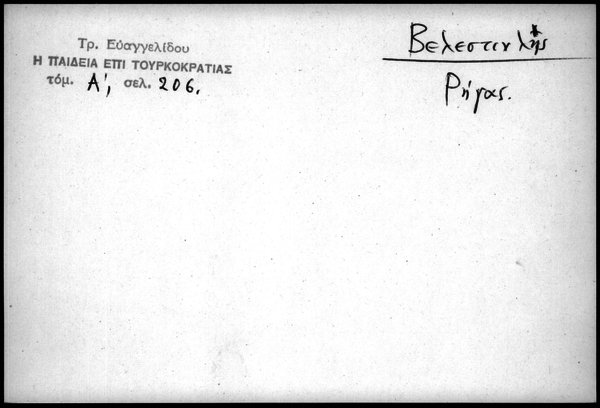 Τρ. Εὐαγγελίδου
Η ΠΑΙΔΕΙΑ ΕΠΙ ΤΟΥΡΚΟΚΡΑΤΙΑΣ
τόμ. Α', σελ. 206.
Βελεστινλῆς
Ρήγας.